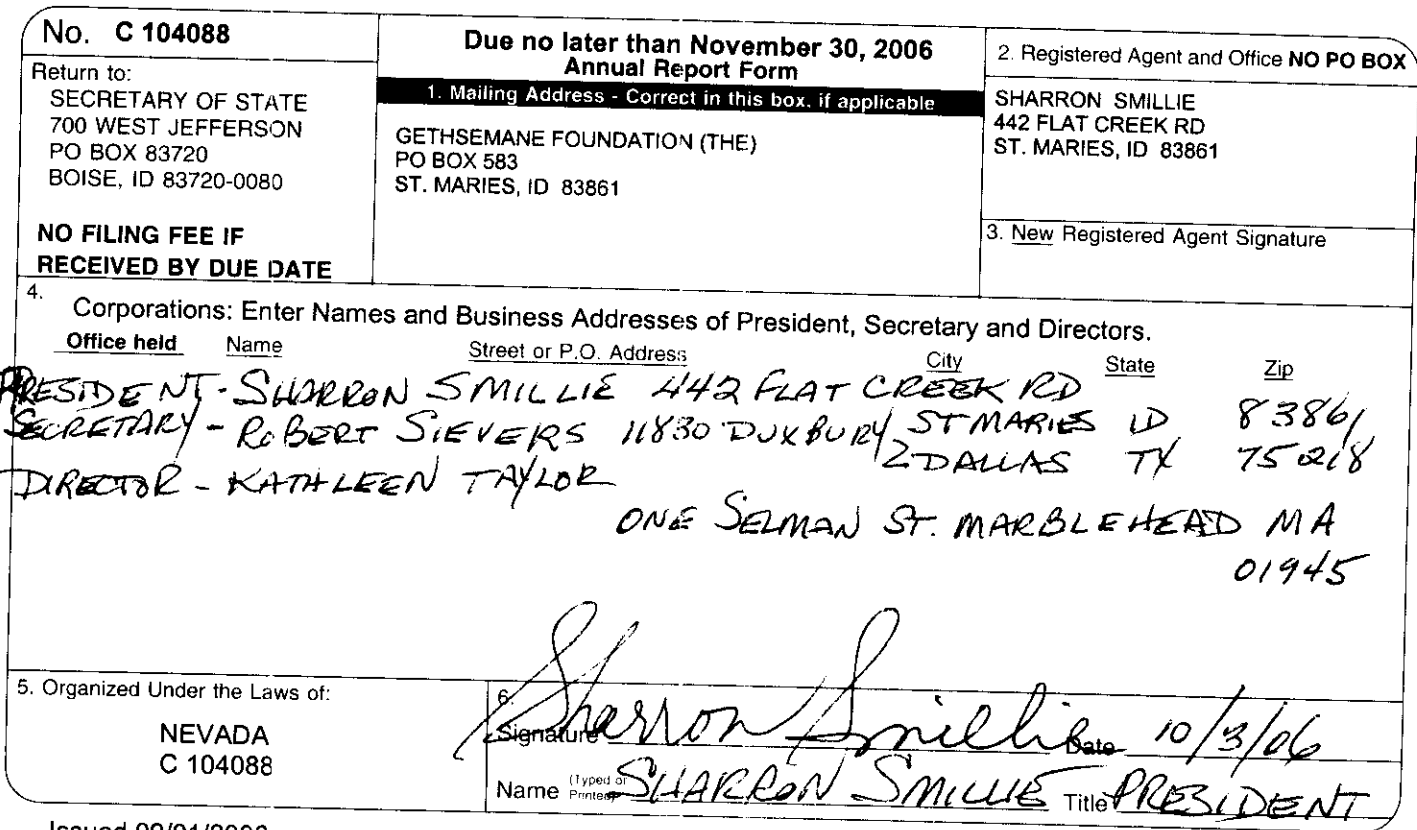 No. C 104088
Return to:
SECRETARY OF STATE
700 WEST JEFFERSON
PO BOX 83720
BOISE, ID 83720-0080
NO FILING FEE IF
RECEIVED BY DUE DATE
Due no later than November 30, 2006
Annual Report Form
1. Mailing Address - Correct in this box, if applicable
GETHSEMANE FOUNDATION (THE)
PO BOX 583
ST. MARIES, ID 83861
2. Registered Agent and Office NO PO BOX
SHARRON SMILLIE
442 FLAT CREEK RD
ST. MARIES, ID 83861
3. New Registered Agent Signature
4. Corporations: Enter Names and Business Addresses of President, Secretary and Directors.
Office held Name Street or P.O. Address City State Zip
PRESIDENT - SHARRON SMILLIE 442 FLAT CREEK RD
ST MARIES ID 83861
SECRETARY - ROBERT SIEVERS 11830 DUXBURY
DALLAS TX 75218
DIRECTOR - KATHLEEN TAYLOR
ONE SELMAN ST. MARBLEHEAD MA
01945
5. Organized Under the Laws of:
NEVADA
C 104088
6. Signature Sharron Smillie Date 10/3/06
Name (Typed or Printed) SHARRON SMILLIE Title PRESIDENT